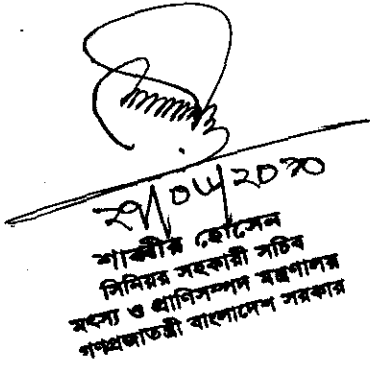 শাব্বীর হোসেন
সিনিয়র সহকারী সচিব
মৎস্য ও প্রাণিসম্পদ মন্ত্রণালয়
গণপ্রজাতন্ত্রী বাংলাদেশ সরকার